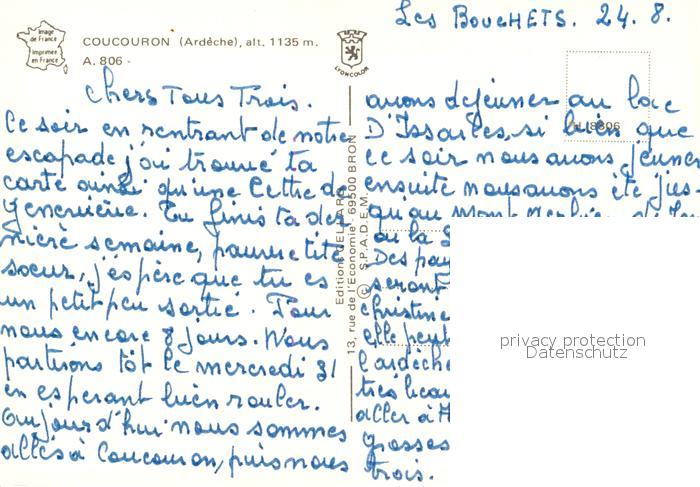 Les Bouchets. 24. 8.
Image
de France
Imprimée
en France
COUCOURON (Ardèche), alt. 1135 m.
A. 806 -
LYONCOLOR
chers Tous Trois.
Ce soir en rentrant de notre
escapade j'ai trouvé ta
carte ainsi qu'une lettre de
Geneviève. Tu finis ta der
nière semaine, pauvre tite
soeur, j'éspère que tu es
un petit peu sortie. Pour
nous encore 8 jours. Nous
partirons tôt le mercredi 31
en esperant bien rouler.
Aujourd'hui nous sommes
allés à Coucouron, puis nous
13, rue de l'Economie - 69500 BRON
© S.P.A.D.E.M.
avons déjeuner au lac
D'Issarles, si bien que
ce soir nous avons jeuner
ensuite nous avons été jus-
qu'au Mont
ou la
Des
seront
christine
elle peut
l'ardèche
très beau
aller à
grosses
trois.
privacy protection
Datenschutz